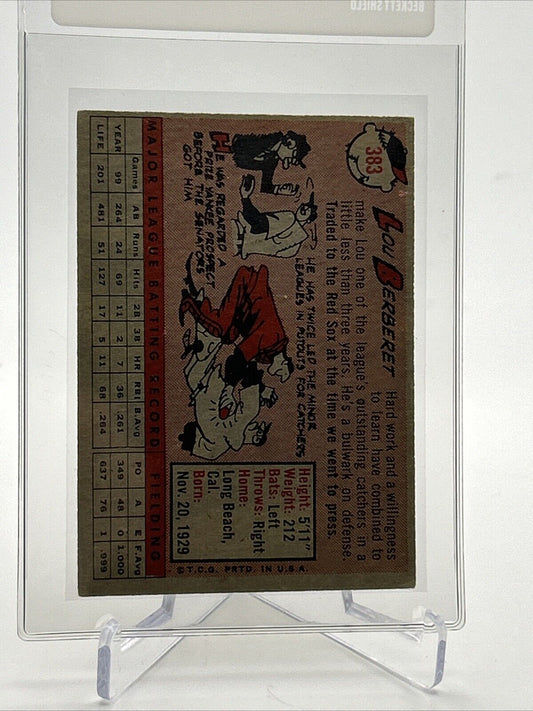 BECKETT SHIELD
383
LOU BERBERET
Hard work and a willingness
to learn have combined to
make Lou one of the league's outstanding catchers in a
little less than three years. He's a bulwark on defense.
Traded to the Red Sox at the time we went to press.
HE WAS REGARDED
PRIZE YANKEE PROSPECT
BEFORE THE SENATORS
GOT HIM
HE HAS TWICE LED THE MINOR
LEAGUES IN PUTOUTS FOR CATCHERS
Height: 5'11"
Weight: 212
Bats: Left
Throws: Right
Home:
Long Beach,
Cal.
Born:
Nov. 20, 1929
© T.C.G. PRTD. IN U.S.A.
MAJOR LEAGUE BATTING RECORD FIELDING
Games AB Runs Hits 2B 3B HR RBI B.Avg PO A E F.Avg
YEAR 99 264 24 69 11 2 7 36 .261 349 48 0 1.000
LIFE 201 481 51 127 17 5 11 68 .264 637 76 1 .999